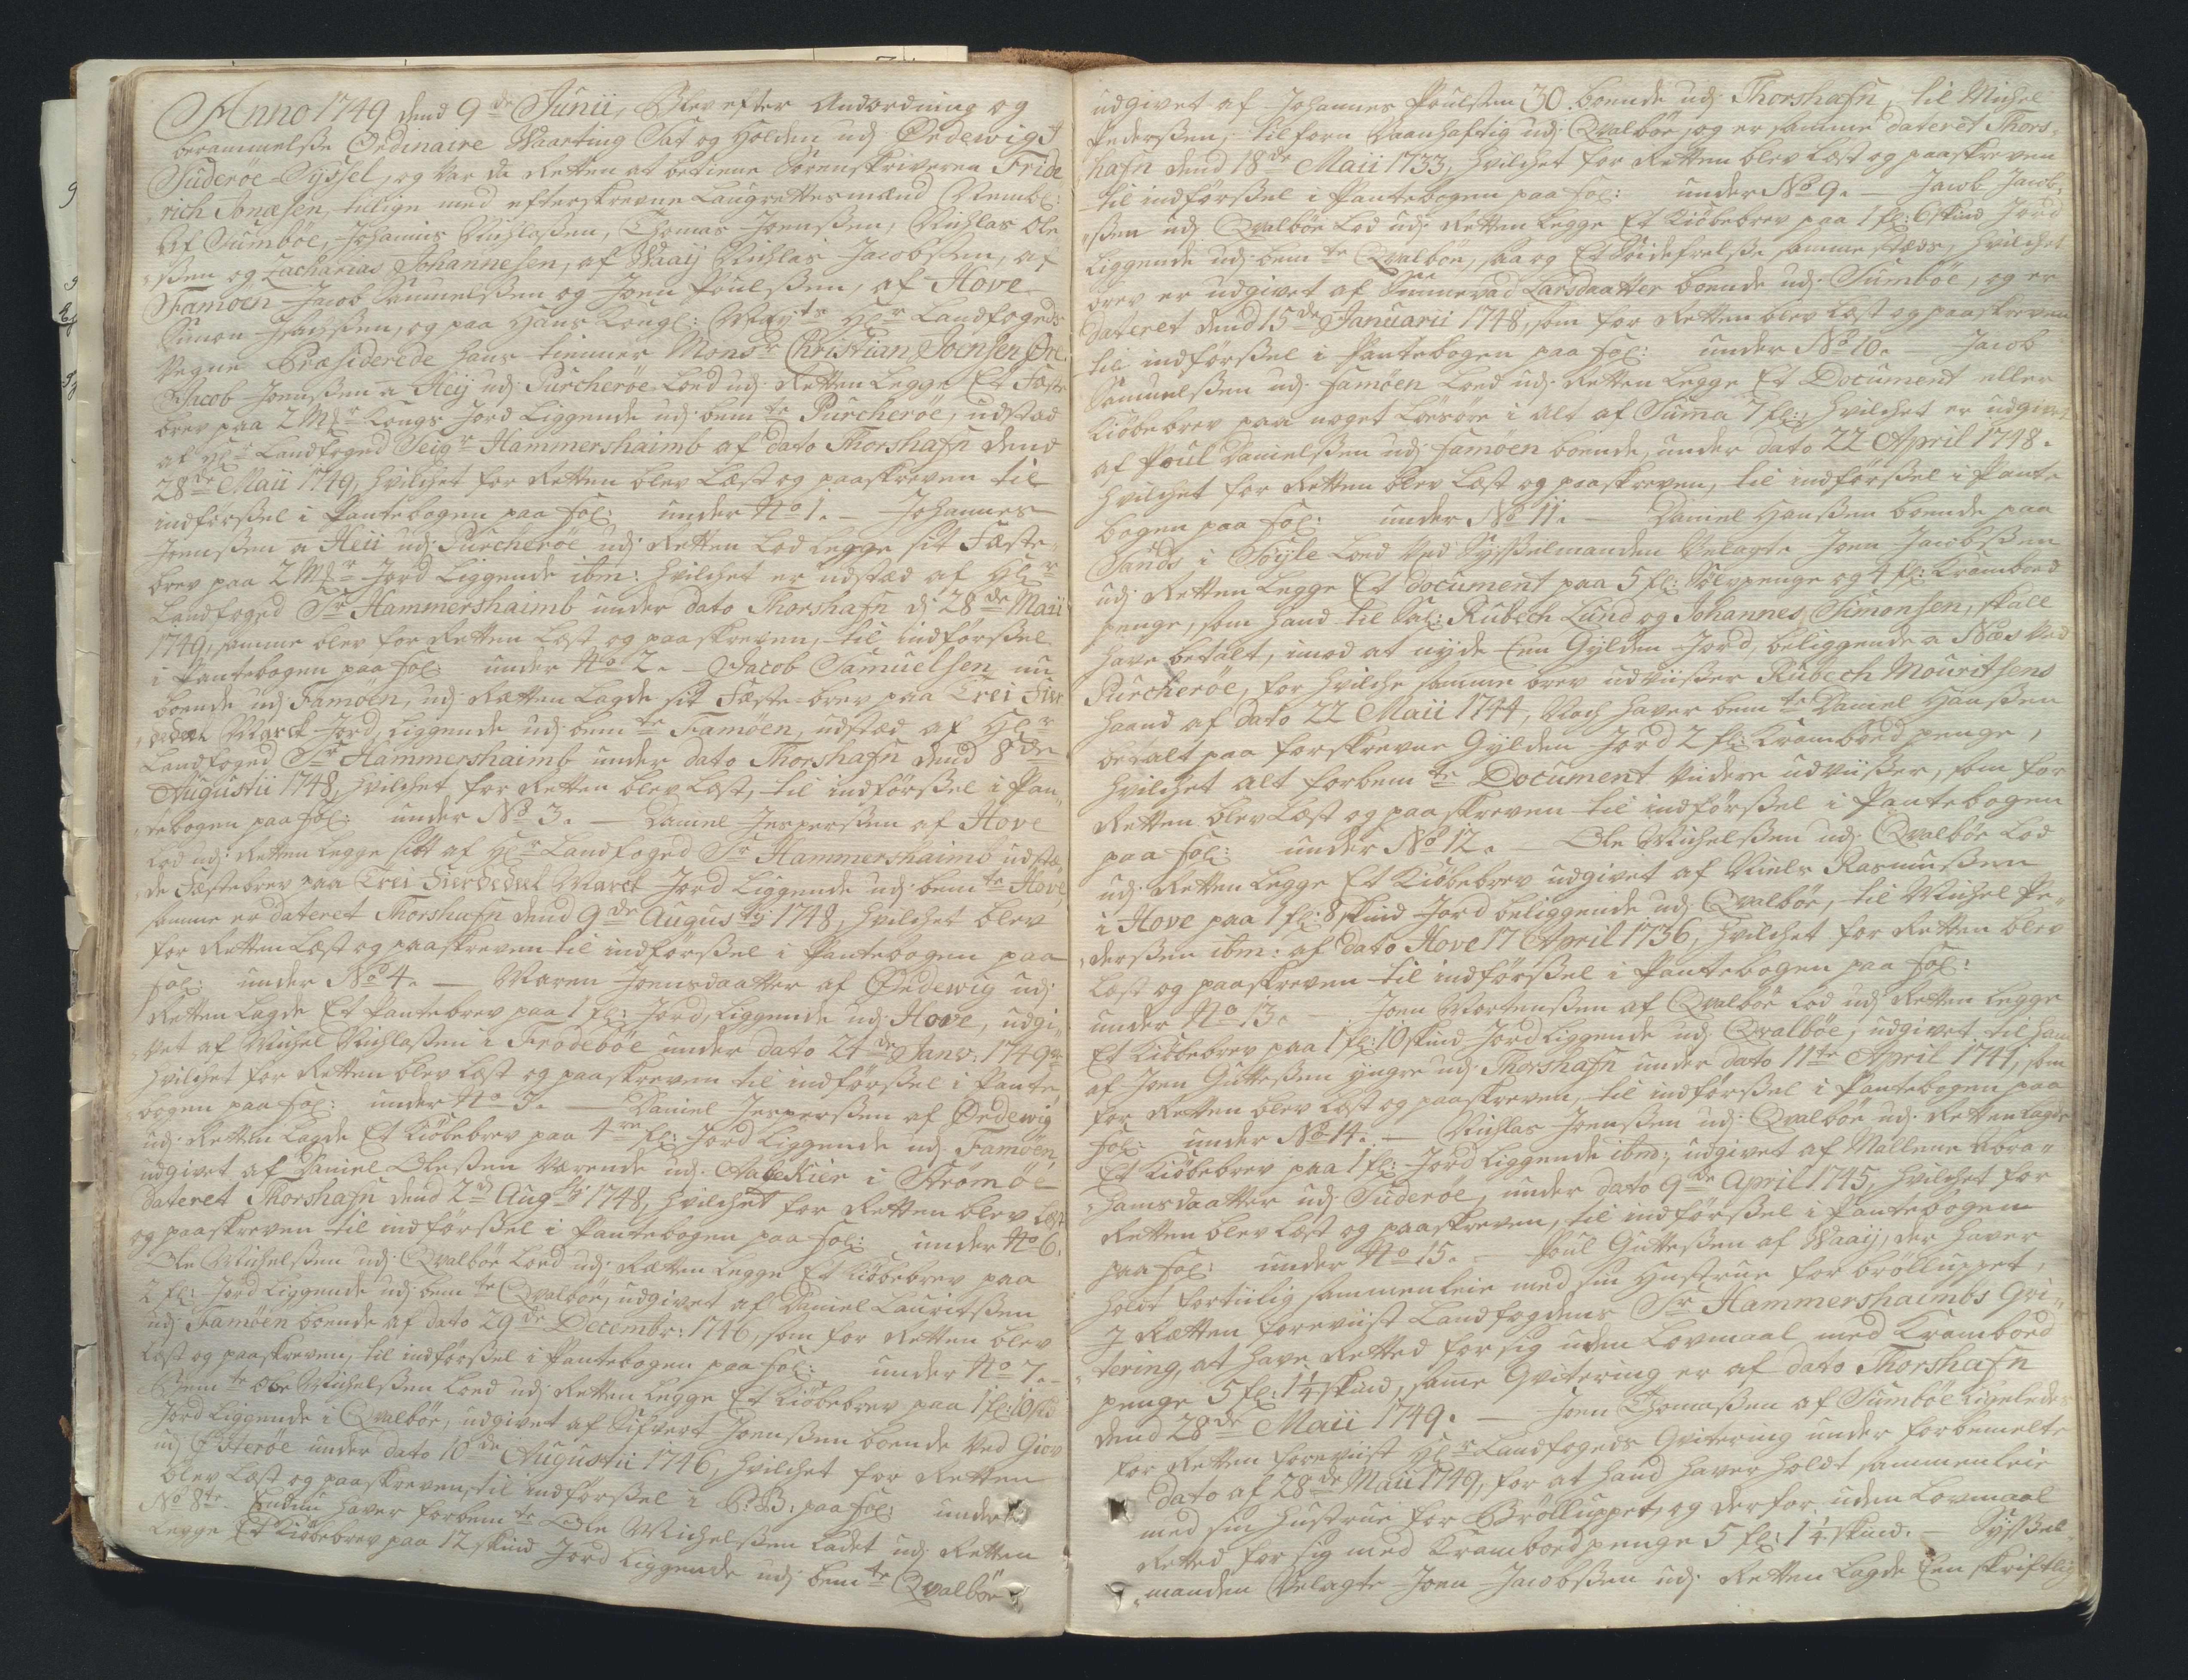 Anno 1749 dend 9de Junii, Blev efter Anordning og
berammelsse Ordinaire Vaarting Sat og Holden udj Ördewig J
Suderöe-Syssel, og var da Retten at betiene Sorenskriveren Fride
rich Jonæsen, tillige med efterskrevne Laugrettesmænd Nembl:
Af Sumböe, Johannis Nichlassen, Thomas Joenssen, Nichlas Ole
ssen og Zacharias Johannesen, af Waaij Nichlas Jacobssen, af
Famöen Jacob Samuelssen og Joen Poulssen, af Hove
Simon Hanssen, og paa Hans Kongl: Mayts Hl Landfogeds
Vegne Præsiderede hans tienner Monsr Christian Joensen Öre.
Jacob Joenssen a Heij udj Purcheröe Loed udj Retten Legge Et Fæste
brev paa 2 Mk Kongs Jord Liggende udj bemte Purcheröe, udstæd
af Hl Landfoged Seigr Hammershaimb af dato Thorshafn dend
28de Maii 1749, hvilchet for Retten blev Læst og paaskreven til
indförssel i Pantebogen paa fol: under No 1. — Johannes
Joenssen a Heii udj Purcheröe udj Retten Lod legge sit Fæste
brev paa 2 Mk Jord Liggende ibm: hvilchet er udstæd af Hl
Landfoged Sr Hammershaimb under dato Thorshafn d: 28de Maii
1749, samme blev for Retten Læst og paaskreven, til indförssel
i Pantebogen paa fol: under No 2. — Jacob Samuelsen nu
boende udj Famöen, udj Rætten Lagde sit Fæste-brev paa Trei Fier
dedeel Marck Jord, Liggende udj bemte Famöen, udstæd af Hl
Landfoged Sr Hammershaimb under dato Thorshafn dend 8de
Augustii 1748, hvilchet for Retten blev Læst, til indförssel i Pan
tebogen paa fol: under No 3. — Daniel Jesperssen af Hove
Lod udj Retten legge sitt af Hl Landfoged Sr Hammershaimb udstæ
de Fæstebrev paa Trei Fierdedeel Marck Jord Liggende udj bemte Hove,
samme er dateret Thorshafn dend 9de Augustij 1748, hvilchet blev
for Retten Læst og paaskreven til indförssel i Pantebogen paa
fol: under No 4. — Maren Joensdaatter af Ördewig udj
Retten Lagde Et Pantebrev paa 1 fl: Jord, Liggende udj Hove, udgi
vet af Michel Nichlassen i Frodeböe under dato 24de Janv: 1749
hvilchet for Retten blev Læst og paaskreven til indförssel i Pante
bogen paa fol: under No 5. — Daniel Jesperssen af Ördewig
udj Retten Lagde Et Kiöbebrev paa 4re fl: Jord Liggende udj Famöen,
udgivet af Daniel Olessen Værende udj Aakekier i Strömöe
dateret Thorshafn dend 2d Augstij 1748, hvilchet for Retten blev Læst
og paaskreven til indförssel i Pantebogen paa fol: under No 6.
Ole Michelssen udj Qvalböe Loed udj Rætten legge Et Kiöbebrev paa
2 fl: Jord Liggende udj bemte Qvalböe, udgivet af Daniel Lauritssen
udj Famöen boende af dato 29de Decembr: 1746, som for Retten blev
Læst og paaskreven, til indförssel i Pantebogen paa fol: under No 7.
Bemte Ole Michelssen Loed udj Retten Legge Et Kiöbebrev paa 1 fl: 10 skd
Jord Liggende i Qvalböe, udgivet af Sifvert Joenssen boende ved Giov
udj Österöe under dato 10de Augustii 1746, hvilchet for Retten
blev Læst og paaskreven, til indförssel i P: B: paa fol: under
No 8te. Endnu haver forbemte Ole Michelssen Ladet udj Retten
Legge Et Kiöbebrev paa 12 skind Jord Liggende udj bemte Qvalböe
udgivet af Johannes Poulssen 30 boende udj Thorshafn, til Michel
Pederssen, tilforn Vaanhaftig udj Qvalböe, og er samme dateret Thors-
hafn dend 18de Maii 1733, hvilchet for Retten blev Læst og paaskreven
til indförssel i Pantebogen paa fol: under No 9. — Jacob Jacob-
ssen udj Qvalböe Lod udj Retten Legge Et Kiöbebrev paa 1 fl: 6 skind Jord
Liggende udj bemte Qvalböe, saa og Et Skiödefrelsse samme stæds, hvilchet
brev er udgivet af Sunnevad Larsdaatter boende udj Sumböe, og er
dateret dend 15de Januarii 1748, som for Retten blev Læst og paaskreven
til indförssel i Pantebogen paa fol: under No 10. — Jacob
Samuelssen udj Famöen Loed udj Retten Legge Et Document eller
Kiöbebrev paa noget Lösöre i alt af Suma 7 fl:, hvilchet er udgivet
af Poul Danielssen udj Famöen boende, under dato 22 April 1748.
hvilchet for Retten blev Læst og paaskreven, til indförssel i Pante
bogen paa fol: under No 11. — Daniel Hanssen boende paa
Sands i Töyle Loed ved Sysselmanden Velagte Joen Jacobssen
udj Retten Legge Et document paa 5 fl: Sölvpenge og 4 fl: Kramboed
penge, som hand til Sal: Rubech Lund og Johannes Simonsen, skall
have betalt, imod at nyde Een Gylden Jord, beliggende a Næs ved
Purcheröe, for hvilche samme brev udviisser Rubech Mouritsens
haand af dato 22 Maii 1744, Noch haver bemte Daniel Hanssen
betalt paa forskrevne Gylden Jord 2 fl: Kramboed penge,
hvilchet alt forbemte Document Viidere udviisser, som for
Retten blev Læst og paaskreven til indförssel i Pantebogen
paa fol: under No 12. — Ole Michelssen udj Qvalböe Lod
udj Retten legge Et Kiöbebrev udgivet af Niels Rasmussen
i Hove paa 1 fl: 8 skind Jord beliggende udj Qvalböe, til Michel Pe-
derssen ibm: af dato Hove 17 April 1736, hvilchet for Retten blev
Læst og paaskreven til indförssel i Pantebogen paa fol:
under No 13. — Joen Mortenssen af Qvalböe Lod udj Retten Legge
Et Kiöbebrev paa 1 fl: 10 skind Jord Liggende udj Qvalböe, udgivet til ham
af Joen Guttessen yngre udj Thorshafn under dato 11te April 1741, som
for Retten blev Læst og paaskreven, til indförssel i Pantebogen paa
fol: under No 14. — Nichlas Joenssen udj Qvalböe udj Retten Lagde
Et Kiöbebrev paa 1 fl: Jord Liggende ibm:, udgivet af Mallene Abra-
hamsdaatter udj Suderöe, under dato 9de April 1745, hvilchet for
Retten blev Læst og paaskreven, til indförssel i Pantebogen
paa fol: under No 15. — Poul Guttessen af Waaij, der haver
holdt fortiilig sammenleie med sin Hustrue for brölluppet,
J Rætten foreviist Landfogdens Sr Hammershaimbs Qvi-
tering, at have Retted for sig uden Lovmaal med Kramboed
penge 5 fl: 1 1/4 skind, same Qvitering er af dato Thorshafn
dend 28de Maii 1749. — Joen Thomassen af Sumböe Ligeledes
for Retten foreviist Hl Landfogeds Qvitering under forbemelte
dato af 28de Maii 1749, for at hand haver holdt sammenleie
med sin hustrue for Brölluppet, og derfor uden Lovmaal
Retted for sig med Kramboedpenge 5 fl: 1 1/4 skind. — Syssel-
manden Velagte Joen Jacobssen udj Retten Lagde Een skriftlig